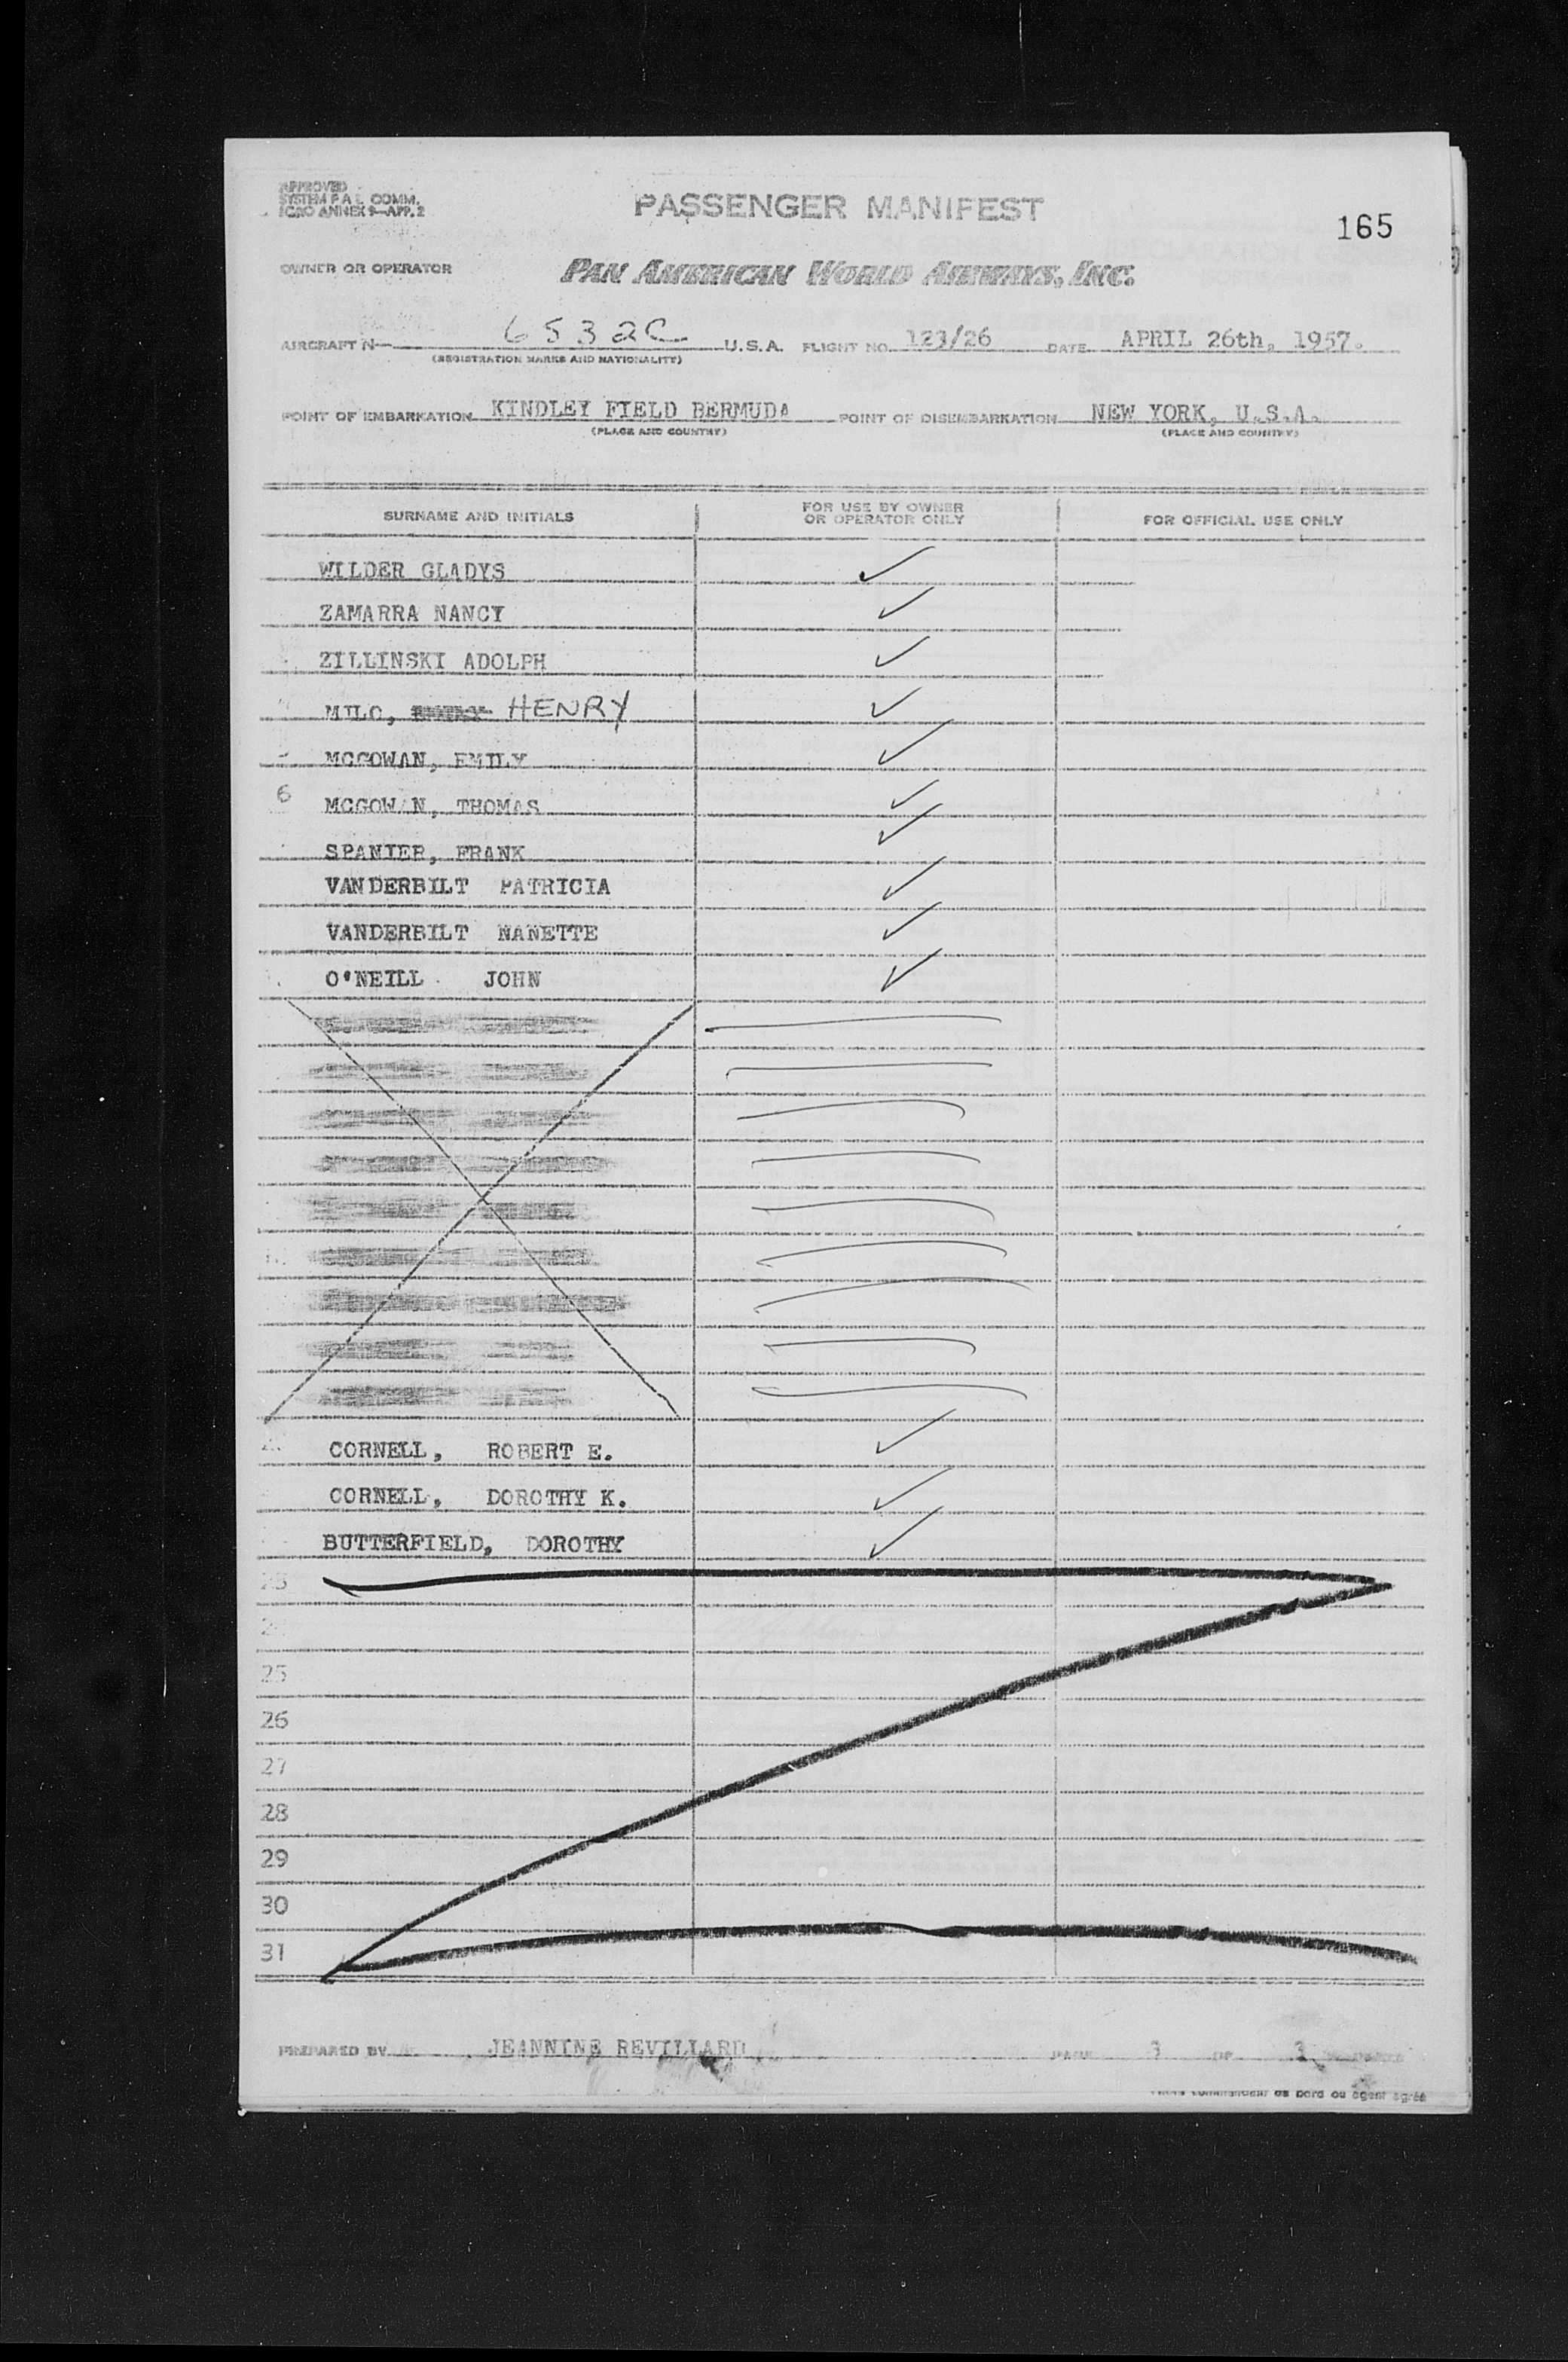 APPROVED
SYSTEM F A L COMM.
ICAO ANNEX 9—APP. 2
PASSENGER MANIFEST
165
OWNER OR OPERATOR PAN AMERICAN WORLD AIRWAYS, INC.
AIRCRAFT N— 6532C U.S.A. FLIGHT NO. 123/26 DATE APRIL 26th, 1957.
(REGISTRATION MARKS AND NATIONALITY)
POINT OF EMBARKATION KINDLEY FIELD BERMUDA POINT OF DISEMBARKATION NEW YORK, U.S.A.
(PLACE AND COUNTRY) (PLACE AND COUNTRY)
SURNAME AND INITIALS FOR USE BY OWNER OR OPERATOR ONLY FOR OFFICIAL USE ONLY
WILDER GLADYS
ZAMARRA NANCY
ZILLINSKI ADOLPH
MILO, HENRY
MCGOWAN, EMILY
6 MCGOWAN, THOMAS
SPANIER, FRANK
VANDERBILT PATRICIA
VANDERBILT NANETTE
O'NEILL JOHN
CORNELL, ROBERT E.
CORNELL, DOROTHY K.
BUTTERFIELD, DOROTHY
23
25
26
27
28
29
30
31
PREPARED BY JEANNINE REVILLARD PAGE 3 OF 3
commandant de bord ou agent agréé